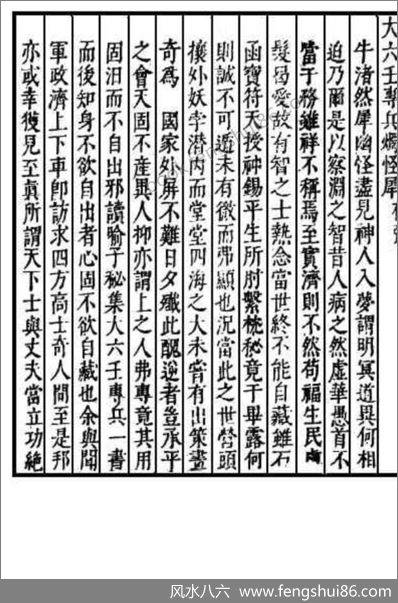 大六壬專兵燭怪犀
牛渚然犀幽怪盡見神人入夢謂明冥道異何相
迫乃爾是以察淵之智昔人病之然虛華愚首不
當于務雖祥不稱焉至實濟則不然苟福生民
髮曷愛故有智之士熱念當世終不能自藏雖石
函寶符天授神錫平生所肘繫枕秘竟于畢露何
則誠不可遏未有微而弗顯也況當此之世營頭
攘外妖李潜內而堂堂四海之大未甞有出策畫
奇為 國家外屏不難日夕殲此醜逆者豈承平
之會天固不産異人抑亦謂上之人弗專竟其用
固汨而不自出邪讀喻子秘集大六壬專兵一書
而後知身不欲自出者心固不欲自藏也余與聞
軍政濟上下車卽訪求四方高士奇人間至是邦
亦或幸獲見至眞所謂天下士與丈夫當立功絶
风水八六 www.fengshui86.com